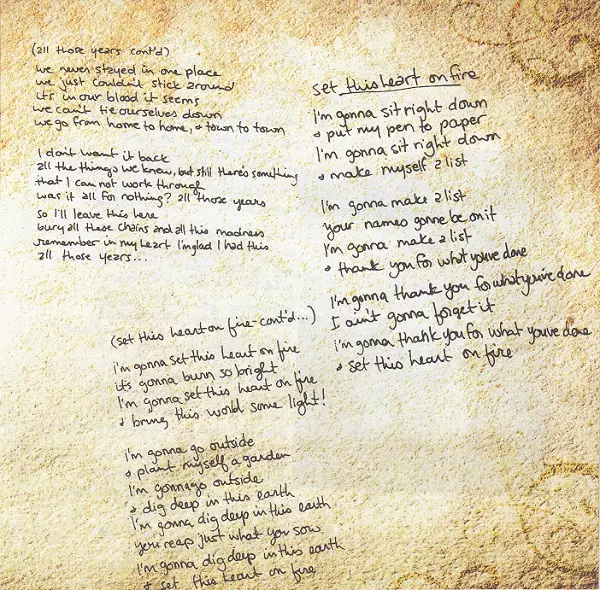 (all those years cont'd)
we never stayed in one place
we just couldn't stick around
it's in our blood it seems
we can't tie ourselves down
we go from home to home, & town to town
I don't want it back
all the things we knew, but still there's something
that I can not work through
was it all for nothing? all those years
so I'll leave this here
bury all these chains and all this madness
remember in my heart I'm glad I had this
all those years...
set this heart on fire
I'm gonna sit right down
& put my pen to paper
I'm gonna sit right down
& make myself a list
I'm gonna make a list
your names gonne be on it
I'm gonna make a list
& thank you for what you've done
I'm gonna thank you for what you've done
I ain't gonna forget it
I'm gonna thank you for what you've done
& set this heart on fire
(set this heart on fire-cont'd...)
i'm gonna set this heart on fire
it's gonna burn so bright
I'm gonna set this heart on fire
& bring this world some light!
I'm gonna go outside
& plant myself a garden
I'm gonna go outside
& dig deep in this earth
I'm gonna dig deep in this earth
you reap just what you sow
I'm gonna dig deep in this earth
& set this heart on fire